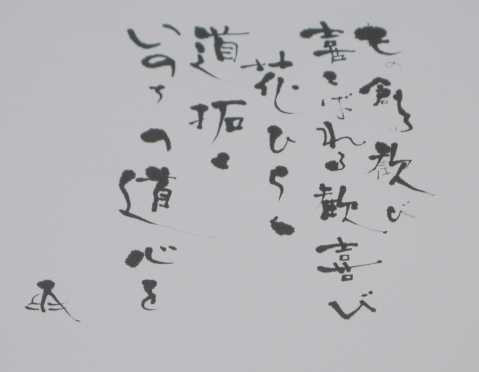 もの創る歓び
喜こばれる歓喜び
花ひらく
道拓く
いのちの道心を